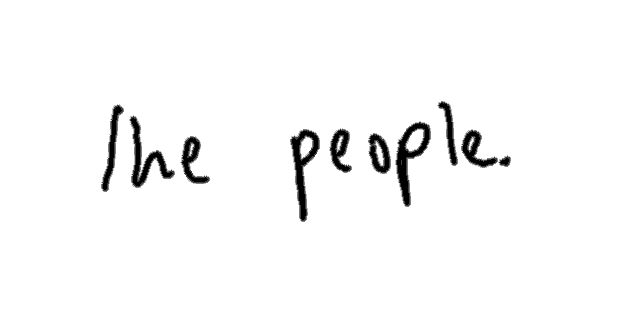 The people.